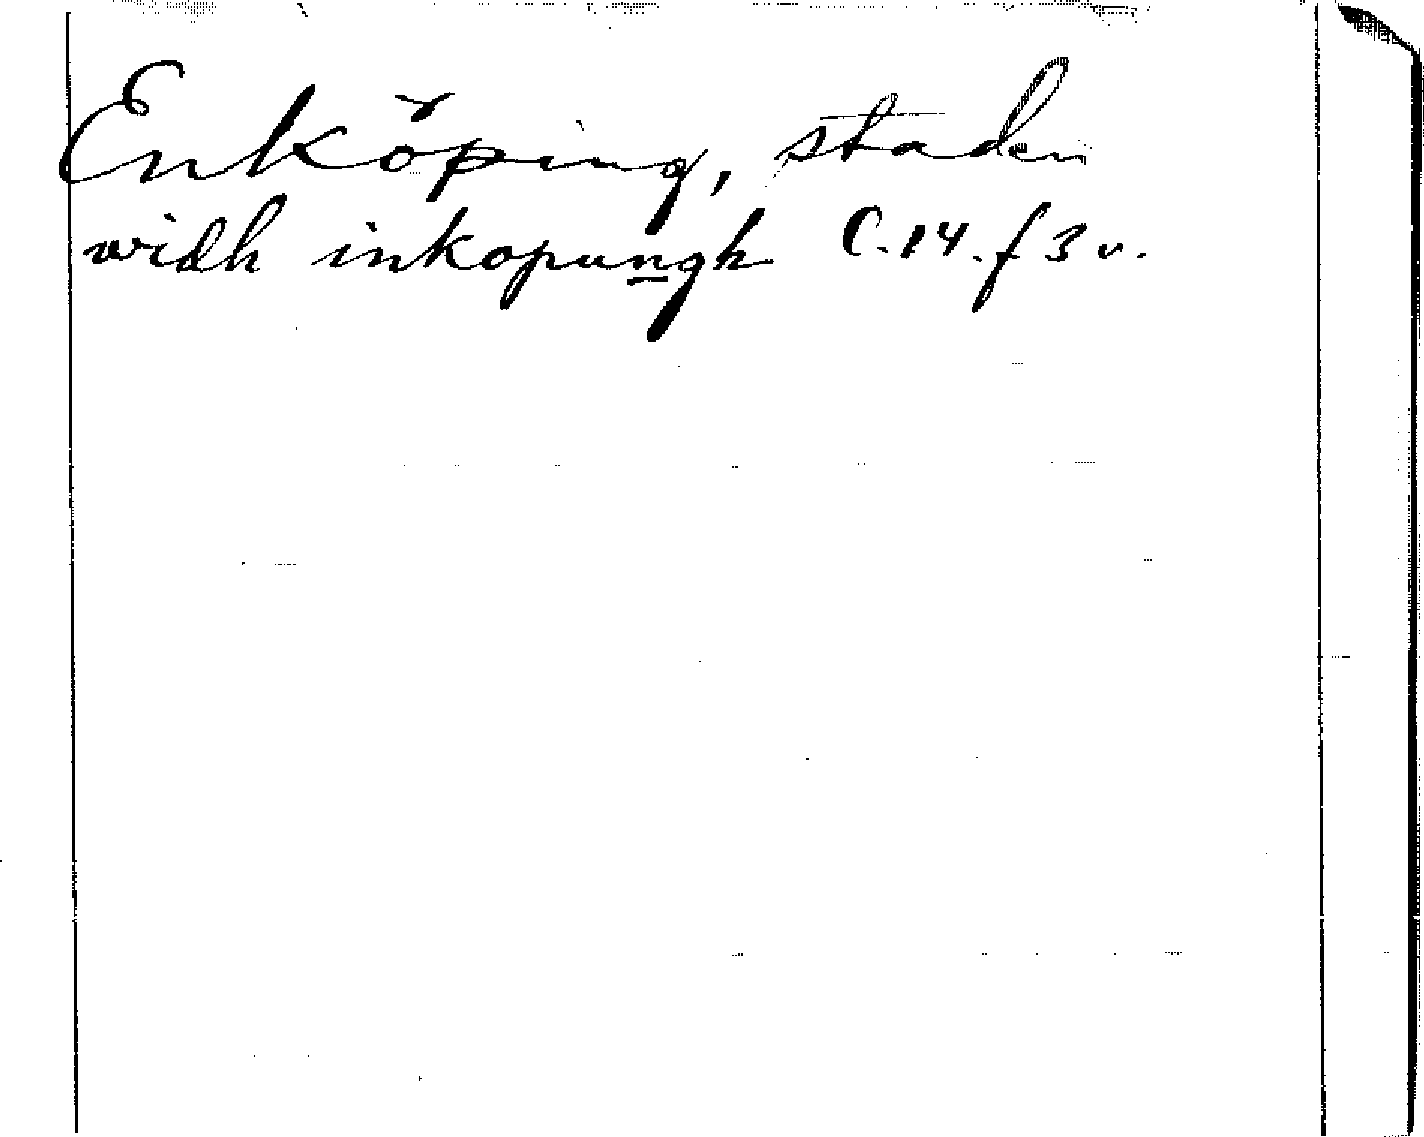 Enköping, staden
widh inkopungh C.14.f 3 v.